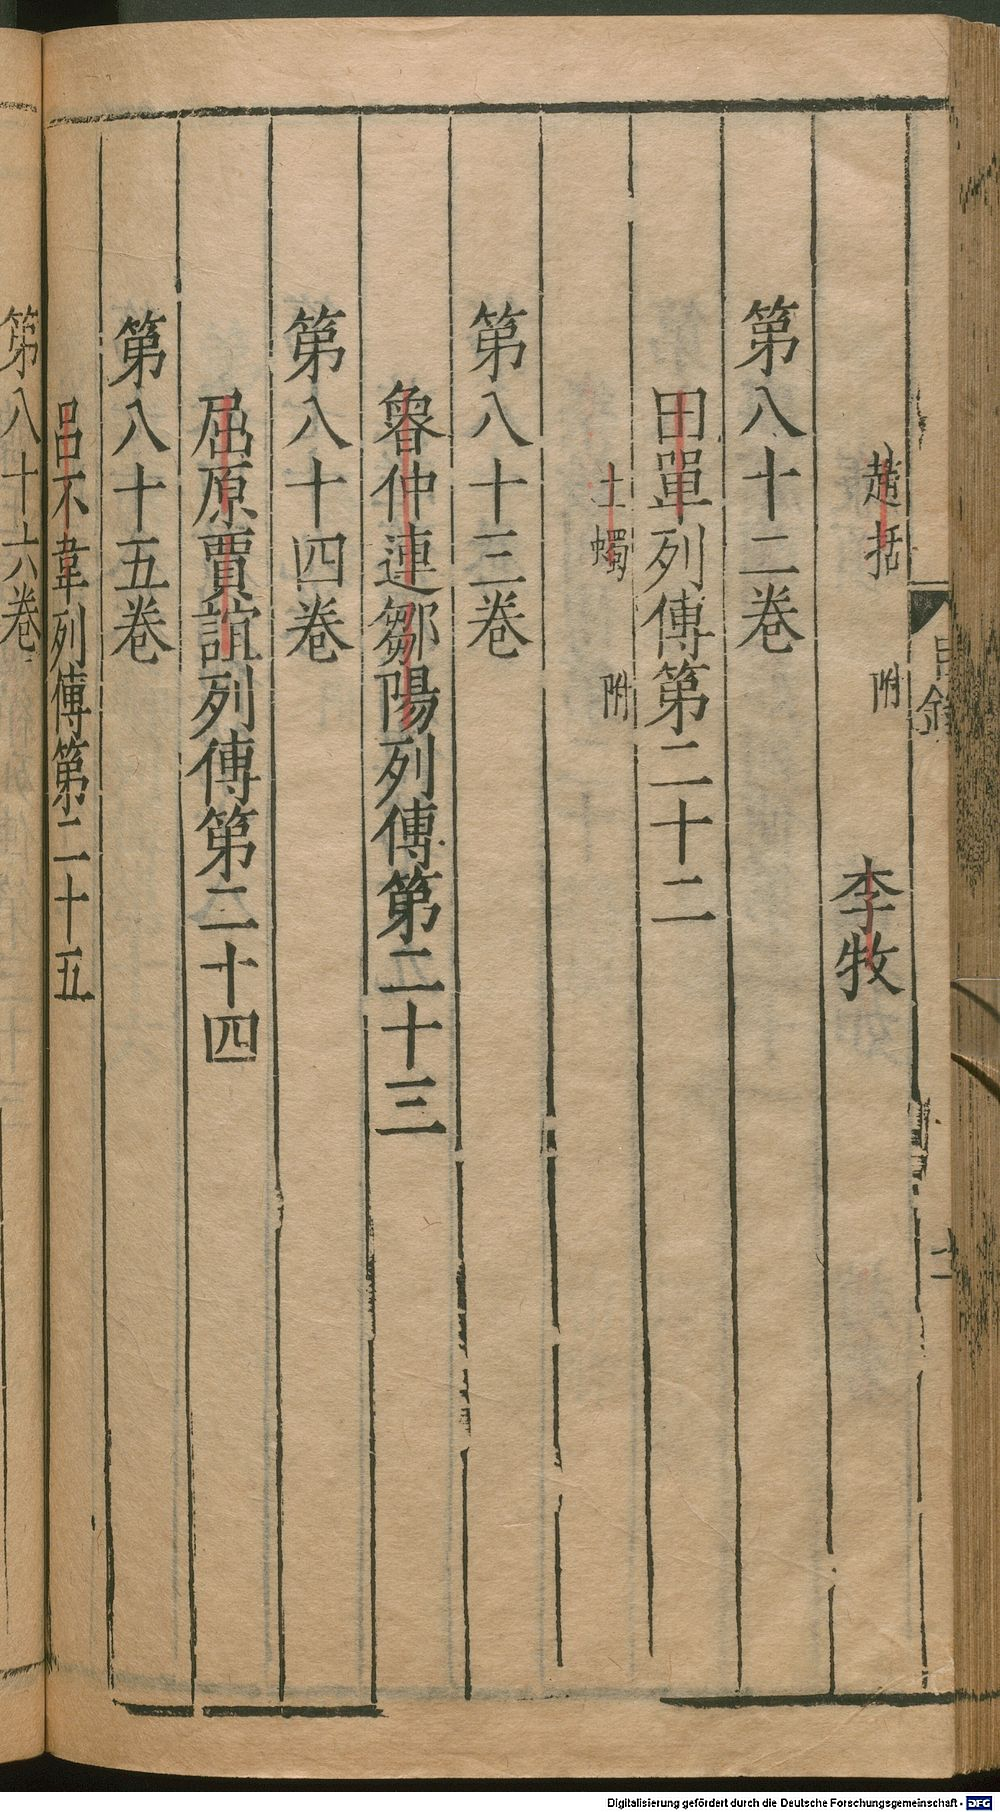 目錄
趙括 附
李牧
第八十二卷
田單列傳第二十二
王蠋 附
第八十三卷
魯仲連鄒陽列傳第二十三
第八十四卷
屈原賈誼列傳第二十四
第八十五卷
呂不韋列傳第二十五
第八十六卷
Digitalisierung gefördert durch die Deutsche Forschungsgemeinschaft - DFG